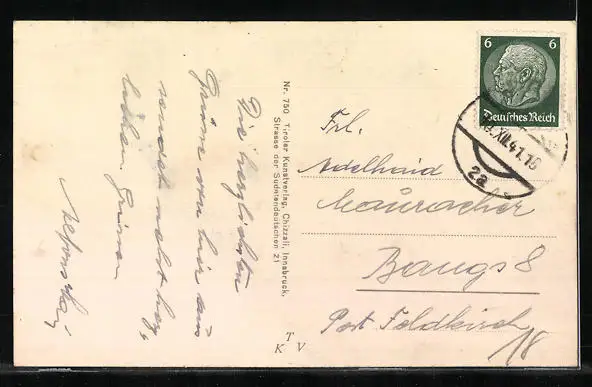 Die herzlichsten
Grüsse von hier aus
sendet nebst herz-
lichen Grüssen
Nr. 750 Tiroler Kunstverlag, Chizzali, Innsbruck,
Strasse der Sudetendeutschen 21
K T V
6 6
Deutsches Reich
XII.41.16
2a
Frl.
Adelhaid
Mauracher
Bangs 8
Post Feldkirch
18